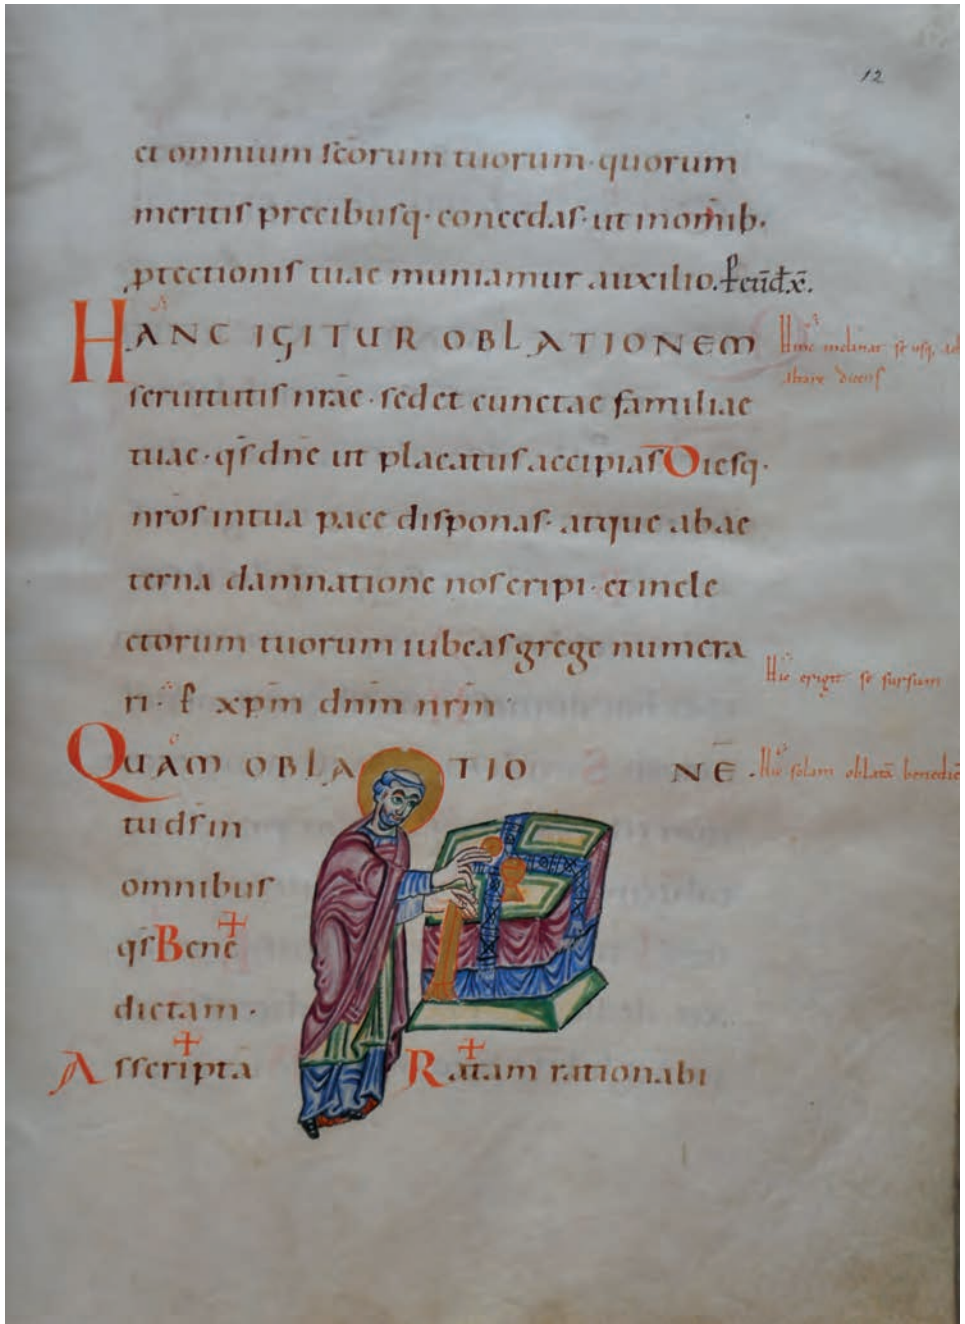 12
et omnium scōrum tuorum · quorum
meritis precibusq · concedas · ut in omīb ·
ptectionis tuae muniamur auxilio. P eūd x̄.
HANC IGITUR OBLATIONEM
Hic inclinat se usq, ad
altare dicens
seruitutis nr̄ae · sed et cunctae familiae
tuae · qs̄ dn̄e ut placatus accipias Diesq ·
nr̄os in tua pace disponas · atque ab ae
terna damnatione nos eripi · et in ele
ctorum tuorum iubeas grege numera
ri · P xp̄m dn̄m nr̄m ·
Hic erigit se sursum
QUAM OBLATIO NĒ ·
Hic solam oblatā benedic
tu ds̄ in
omnibus
qs̄ Bene
dictam ·
Asscriptā Ratam rationabi